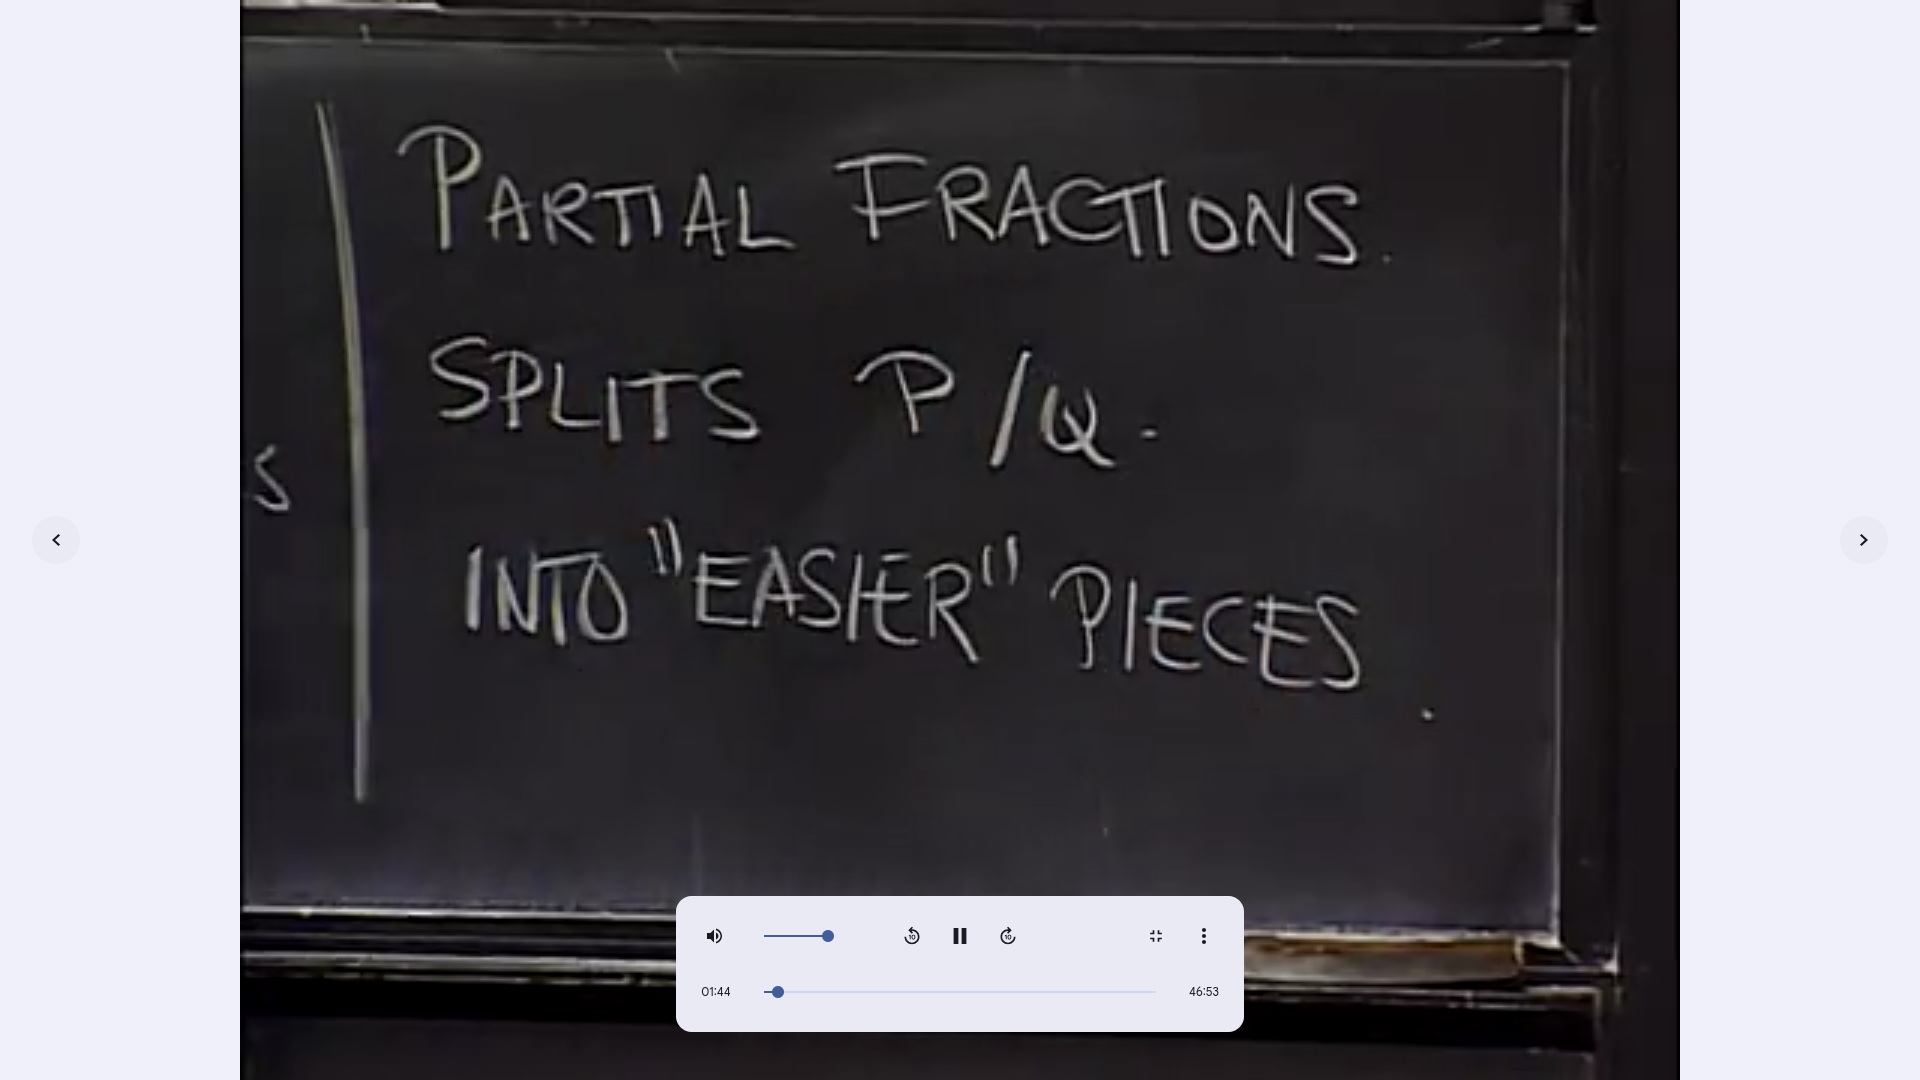 PARTIAL FRACTIONS.
SPLITS P/Q.
S
INTO "EASIER" PIECES.
10
10
01:44
46:53